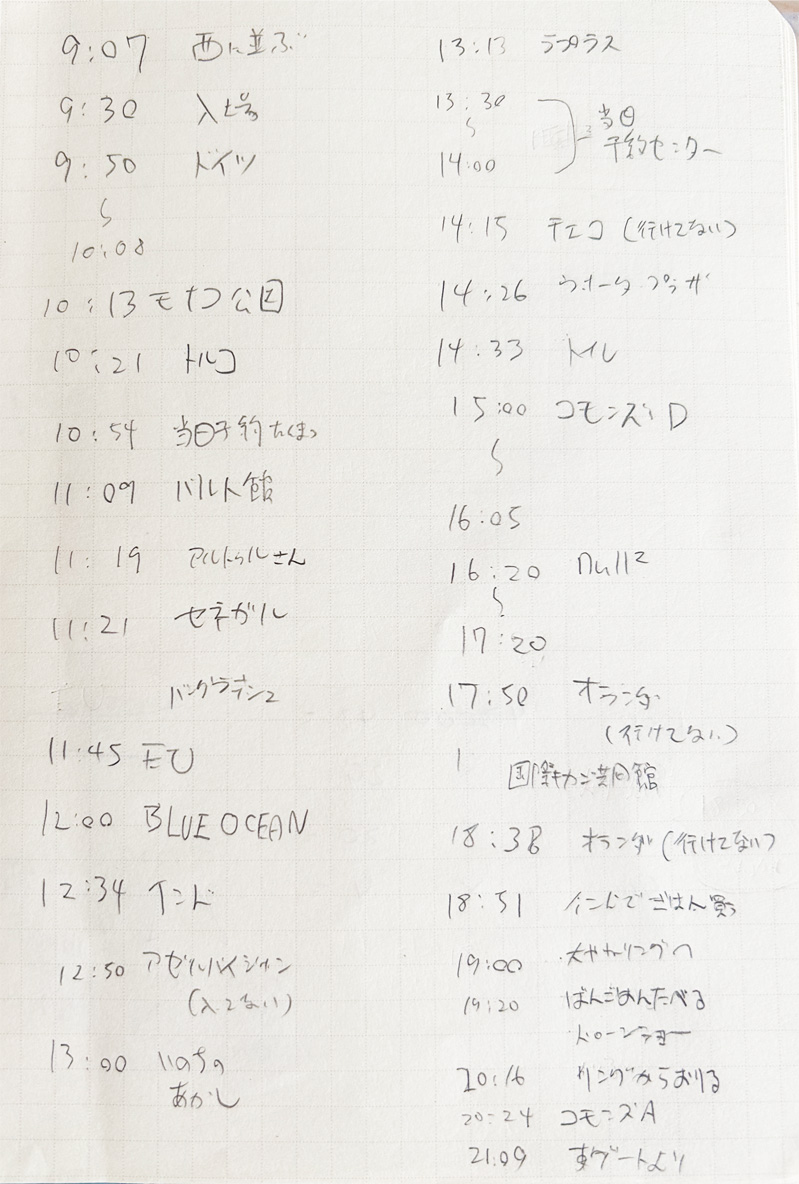 9:07 西に並ぶ
9:30 入場
9:50 ドイツ
〜
10:08
10:13 モナコ公国
10:21 トルコ
10:54 当日予約
11:09 バルト館
11:19 アルトゥルさん
11:21 セネガル
バングラデシュ
11:45 EU
12:00 BLUE OCEAN
12:34 インド
12:50 アゼルバイジャン
(入ってない)
13:00 いのちの
あかし
13:13 ラプラス
13:30
〜
14:00
当日
予約センター
14:15 チェコ (行けてない)
14:26 ウォータープラザ
14:33 トイレ
15:00 コモンズD
〜
16:05
16:20 null²
〜
17:20
17:50 オランダ
(行けてない)
国際キカン共同館
18:38 オランダ (行けてない)
18:51 インドでごはん買う
19:00 大ヤネリングへ
19:20 ばんごはんたべる
ドローンショー
20:16 リングからおりる
20:24 コモンズA
21:09 東ゲートより